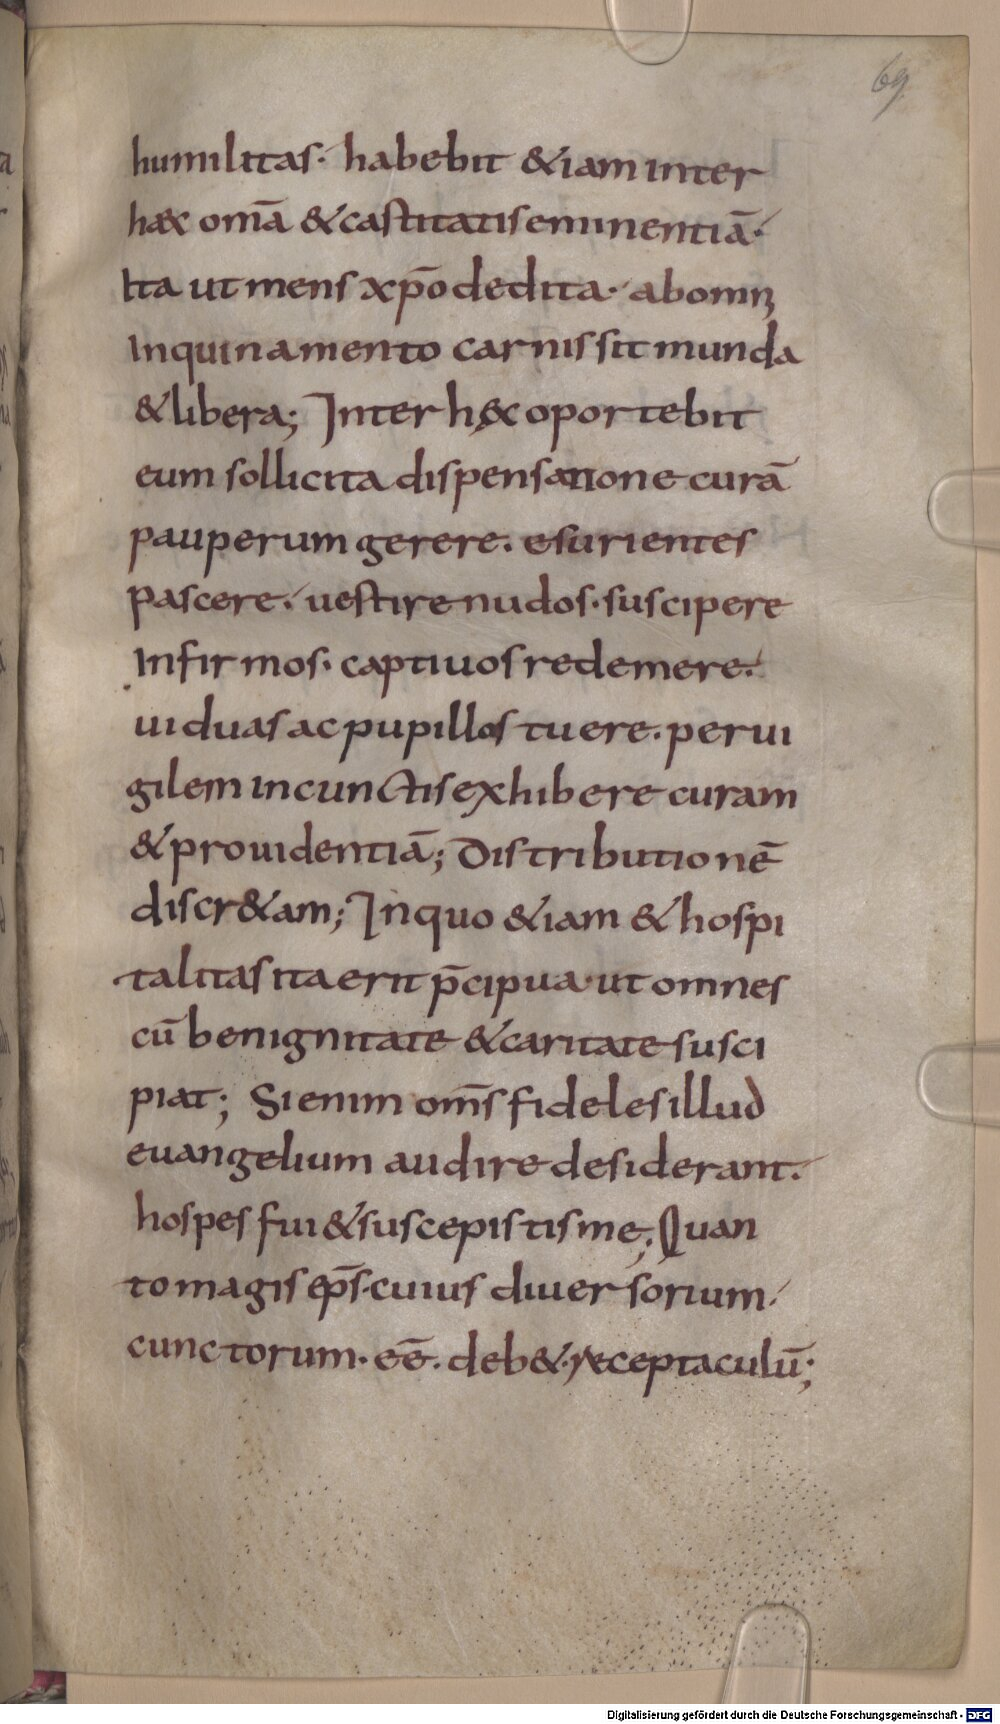 69
humilitas· habebit &iam inter
hæc omā & castitatis eminentiā·
Ita ut mens xp̄o dedita· ab omnꝫ
Inquinamento carnis sit munda
& libera; Inter hęc oportebit
eum sollicita dispensatione curā
pauperum gerere. esurientes
pascere· uestire nudos· suscipere
Infirmos· captiuos redemere·
uiduas ac pupillos tuere· perui
gilem in cunctis exhibere curam
& prouidentiā; Distributionē
discr&am; In quo &iam & hospi
talitas ita erit p̄cipua· ut omnes
cū benignitate & caritate susci
piat; Si enim om̄s fideles illud
euangelium audire desiderant·
hospes fui & suscepistis me; Quan
to magis ep̄s· cuius diuersorium·
cunctorum· eē· deb&· receptaculū;
Digitalisierung gefördert durch die Deutsche Forschungsgemeinschaft - DFG